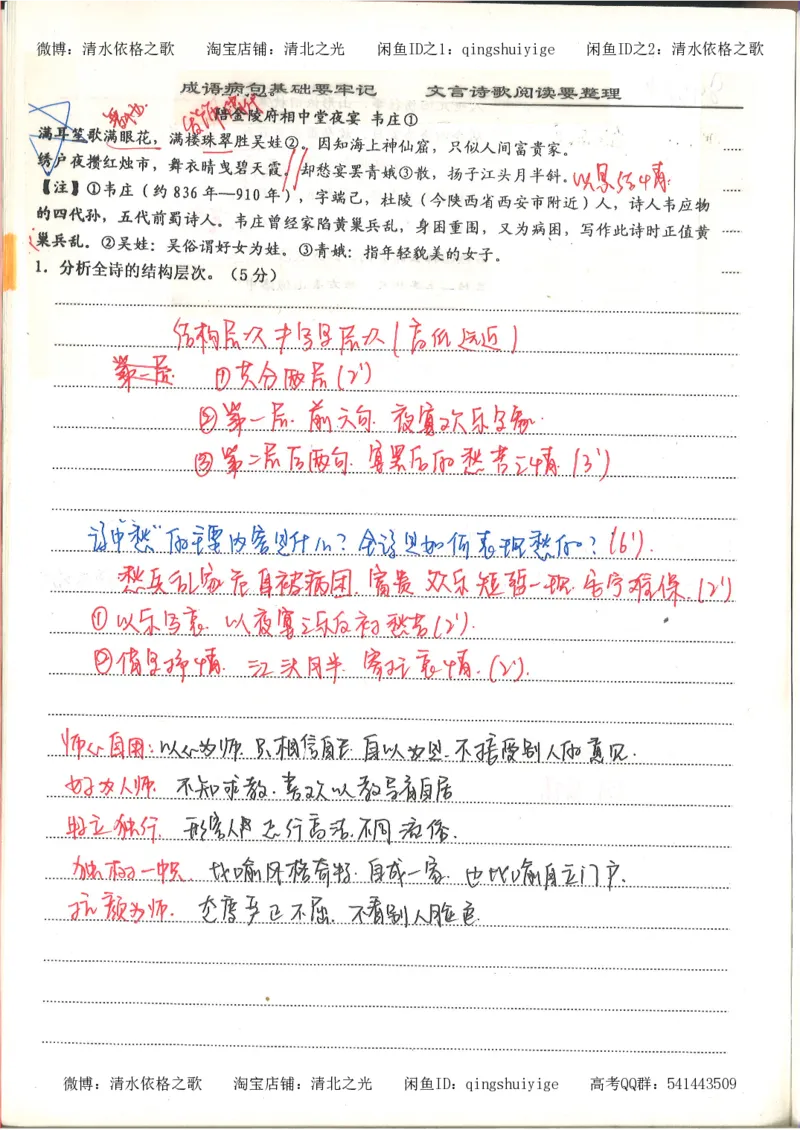 微博：清水依格之歌 淘宝店铺：清北之光 闲鱼ID之1：qingshuiyige 闲鱼ID之2：清水依格之歌
成语病句基础要牢记 文言诗歌阅读要整理
陪金陵府相中堂夜宴 韦庄①
满耳笙歌满眼花，满楼珠翠胜吴娃②。因知海上神仙窟，只似人间富贵家。
绣户夜攒红烛市，舞衣晴曳碧天霞。却愁宴罢青娥③散，扬子江头月半斜。
以景结情
【注】①韦庄（约836年—910年），字端己，杜陵（今陕西省西安市附近）人，诗人韦应物
的四代孙，五代前蜀诗人。韦庄曾经家陷黄巢兵乱，身困重围，又为病困，写作此诗时正值黄
巢兵乱。②吴娃：吴俗谓好女为娃。③青娥：指年轻貌美的女子。
1．分析全诗的结构层次。（5分）
结构层次≠写景层次（高低远近）
第一层 ①共分两层(2')
②第一层 前六句 夜宴欢乐
③第二层 后两句 宴罢后的愁苦之情 (3')
诗中“愁”的主要内容是什么？全诗是如何表现愁的？(6').
愁兵乱家危自被病困，富贵欢乐短暂一现 难保. (2')
①以乐写哀 以夜宴之乐反衬愁苦(2').
②借景抒情 江头月半 寄托哀情. (2').
师心自用：以心为师 只相信自己 自以为是 不接受别人的意见.
好为人师. 不知求教. 喜欢以教导者自居
特立独行. 形容人的志行高洁 不同流俗.
独树一帜 比喻风格奇特 自成一家 也比喻自立门户.
抗颜为师. 态度严正不屈. 不看别人脸色.
微博：清水依格之歌 淘宝店铺：清北之光 闲鱼ID：qingshuiyige 高考QQ群：541443509